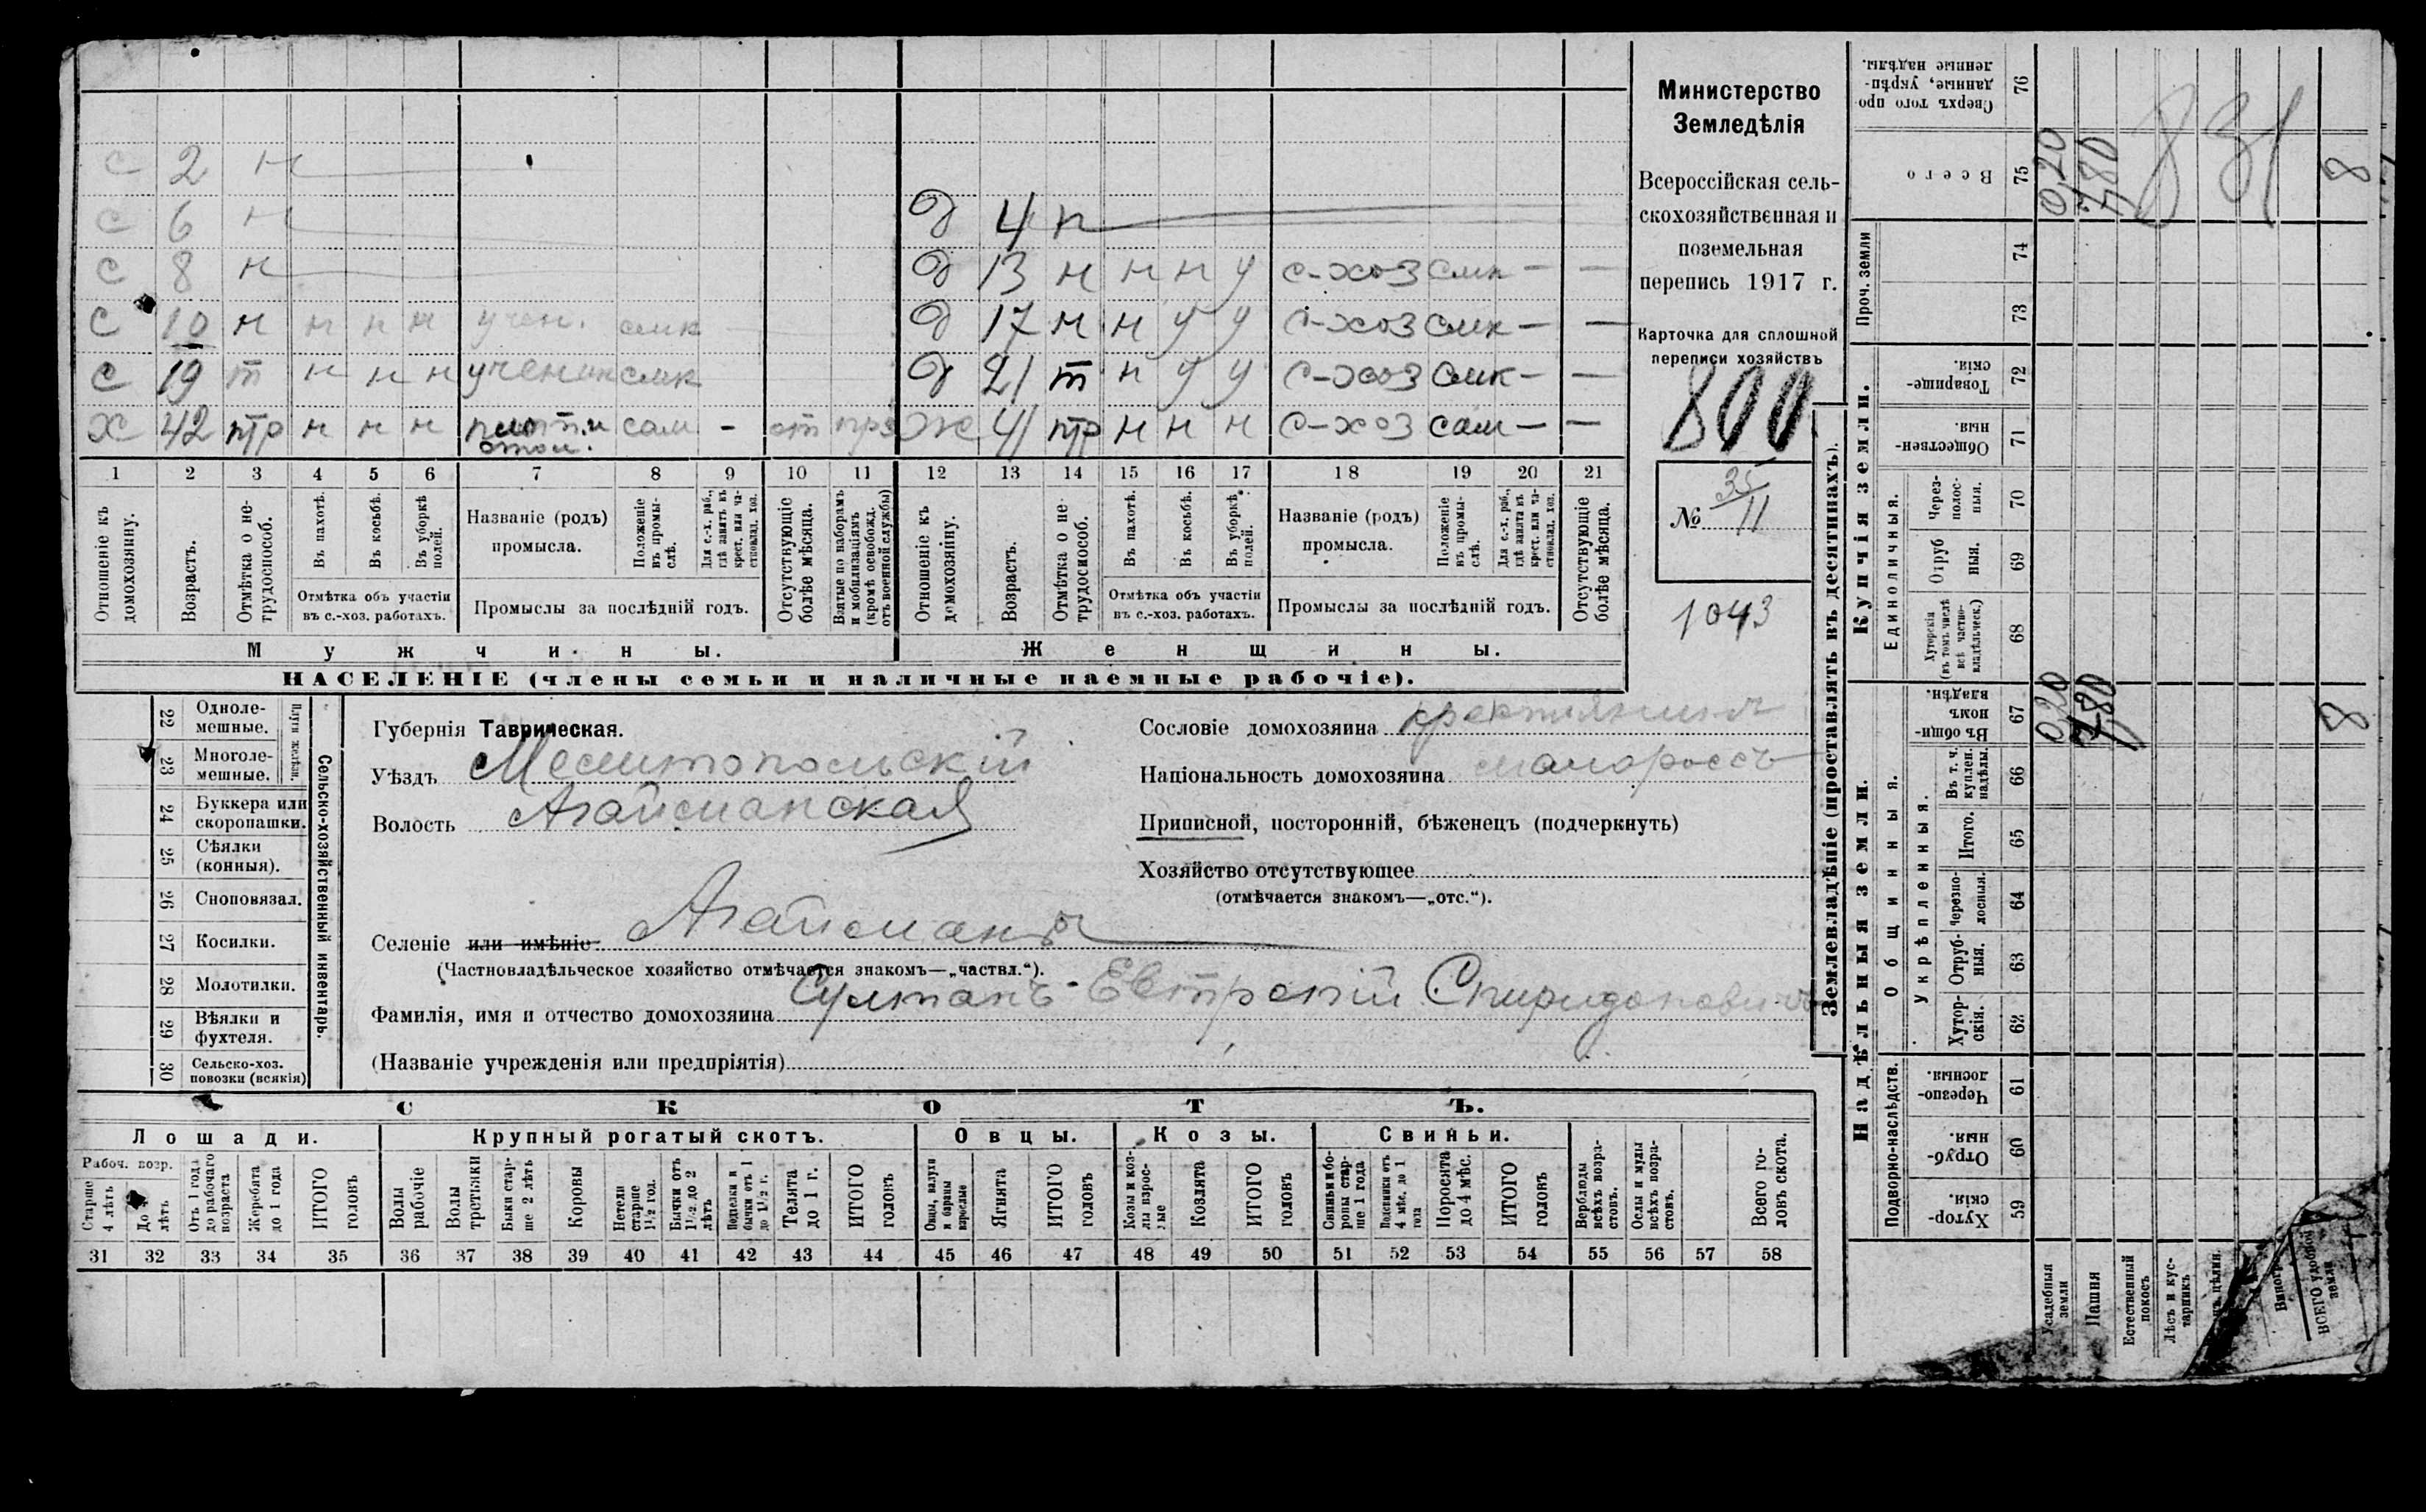 С 2 н
С 6 н
С 8 н
С 10 н н н н учен. смк
С 19 т н н н ученик смк
Х 42 тр н н н сам - от
д 4 н
д 13 н н н у с-хоз смк — —
д 17 н н у у с-хоз смк — —
д 21 т н у у с-хоз смк — —
Ж 41 тр н н н с-хоз сам — —
1 2 3 4 5 6 7 8 9 10 11 12 13 14 15 16 17 18 19 20 21
Отношеніе къ домохозяину.
Возрастъ.
Отмѣтка о не-трудоспособ.
Въ пахотѣ.
Въ косьбѣ.
Въ уборкѣ полей.
Отмѣтка объ участіи въ с.-хоз. работахъ.
Названіе (родъ) промысла.
Положеніе въ промы-слѣ.
Для с.-х. раб., гдѣ занятъ въ крест. или ча-стновлад. хоз.
Промыслы за послѣдній годъ.
Отсутствующіе болѣе мѣсяца.
Взятые по наборамъ и мобилизаціямъ (кромѣ освобожд. отъ военной службы)
Отношеніе къ домохозяину.
Возрастъ.
Отмѣтка о не-трудоспособ.
Въ пахотѣ.
Въ косьбѣ.
Въ уборкѣ полей.
Отмѣтка объ участіи въ с.-хоз. работахъ.
Названіе (родъ) промысла.
Положеніе въ промы-слѣ.
Для с.-х. раб., гдѣ занята въ крест. или ча-стновлад. хоз.
Промыслы за послѣдній годъ.
Отсутствующіе болѣе мѣсяца.
Мужчины.
Женщины.
НАСЕЛЕНІЕ (члены семьи и наличные наемные рабочіе).
Министерство
Земледѣлія
Всероссійская сель-
скохозяйственная и
поземельная
перепись 1917 г.
Карточка для сплошной
переписи хозяйствъ
800
№ 35/11
1043
22 Одноле-мешные.
23 Многоле-мешные.
Плуги желѣзн.
24 Буккера или скоропашки.
25 Сѣялки (конныя).
26 Сноповязал.
27 Косилки.
28 Молотилки.
29 Вѣялки и фухтеля.
30 Сельско-хоз. повозки (всякія)
Сельско-хозяйственный инвентарь.
Губернія Таврическая.
Уѣздъ Мелитопольскій
Волость Агайманская
Селеніе или имѣніе Агайманы
(Частновладѣльческое хозяйство отмѣчается знакомъ—„частвл.“).
Фамилія, имя и отчество домохозяина Султанъ Евтропій Спиридоновичъ
(Названіе учрежденія или предпріятія)
Сословіе домохозяина крестьянинъ
Національность домохозяина малороссъ
Приписной, посторонній, бѣженецъ (подчеркнуть)
Хозяйство отсутствующее
(отмѣчается знакомъ—„отс.“).
СКОТЪ.
Лошади.
Крупный рогатый скотъ.
Овцы.
Козы.
Свиньи.
Рабоч. возр.
Старше 4 лѣтъ
До лѣтъ
Отъ 1 года до рабочаго возраста
Жеребята до 1 года
ИТОГО головъ
Волы рабочіе
Волы третьяки
Быки стар-ше 2 лѣтъ
Коровы
Нетели старше 1½ год.
Бычки отъ 1½ до 2 лѣтъ
Подтелки и бычки отъ 1 до 1½ г.
Телята до 1 г.
ИТОГО головъ
Овцы, валухи и бараны взрослые
Ягнята
ИТОГО головъ
Козы и коз-лы взрос-лые
Козлята
ИТОГО головъ
Свиньи и бо-ровы стар-ше 1 года
Подсвинки отъ 4 мѣс. до 1 года
Поросята до 4 мѣс.
ИТОГО головъ
Верблюды всѣхъ возра-стовъ.
Ослы и мулы всѣхъ возра-стовъ.
Всего го-ловъ скота.
31 32 33 34 35 36 37 38 39 40 41 42 43 44 45 46 47 48 49 50 51 52 53 54 55 56 57 58
Землевладѣніе (проставлять въ десятинахъ).
Купчія земли.
Надѣльныя земли.
Сверхъ того про-данные, укрѣп-ленные надѣлы. 76
Всего 75 0,20 7,80 8
831
Проч. земли
74
73
Товарище-скія. 72
Обществен-ныя. 71
Единоличныя.
Через-полос-ныя. 70
Отруб ныя. 69
Хуторскія (въ томъ числѣ всѣ частно-владѣльческ.) 68
Въ общин-номъ владѣн. 67 0,20 7,80 8
Общинныя.
Укрѣпленныя.
Въ т. ч. куплен. надѣлы. 66
Итого. 65
Черезпо-лосныя. 64
Отруб-ныя. 63
Хутор-скія. 62
Подворно-наслѣдств.
Черезпо-лосныя. 61
Отруб-ныя. 60
Хутор-скія. 59
Усадебныя земли
Пашня
Естественный покосъ
Лѣсъ и кус-тарникъ
ВСЕГО удобной земли